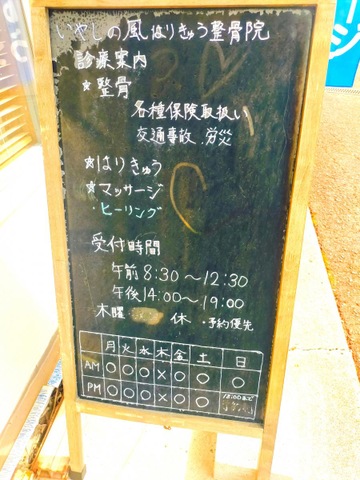 いやしの風はりきゅう整骨院
診療案内
☆整骨
各種保険取扱い
交通事故.労災
☆はりきゅう
☆マッサージ
・ヒーリング
受付時間
午前8:30〜12:30
午後14:00〜19:00
木曜 休・予約優先
月火水木金土日
AM○○○×○○○
PM○○○×○○12:00まで